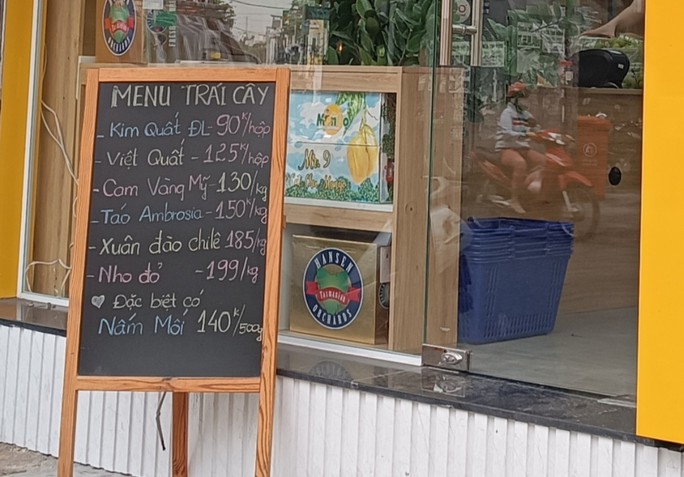 MENU TRÁI CÂY
- Kim Quất ĐL - 90K/hộp
- Việt Quất - 125K/hộp
- Cam Vàng Mỹ - 130/kg
- Táo Ambrosia - 150K/kg
- Xuân đào chilê 185/kg
- Nho đỏ - 199/kg
Đặc biệt có
Nấm Mối 140K/500g
No. 9
HANSEN
TASMANIAN
ORCHARDS